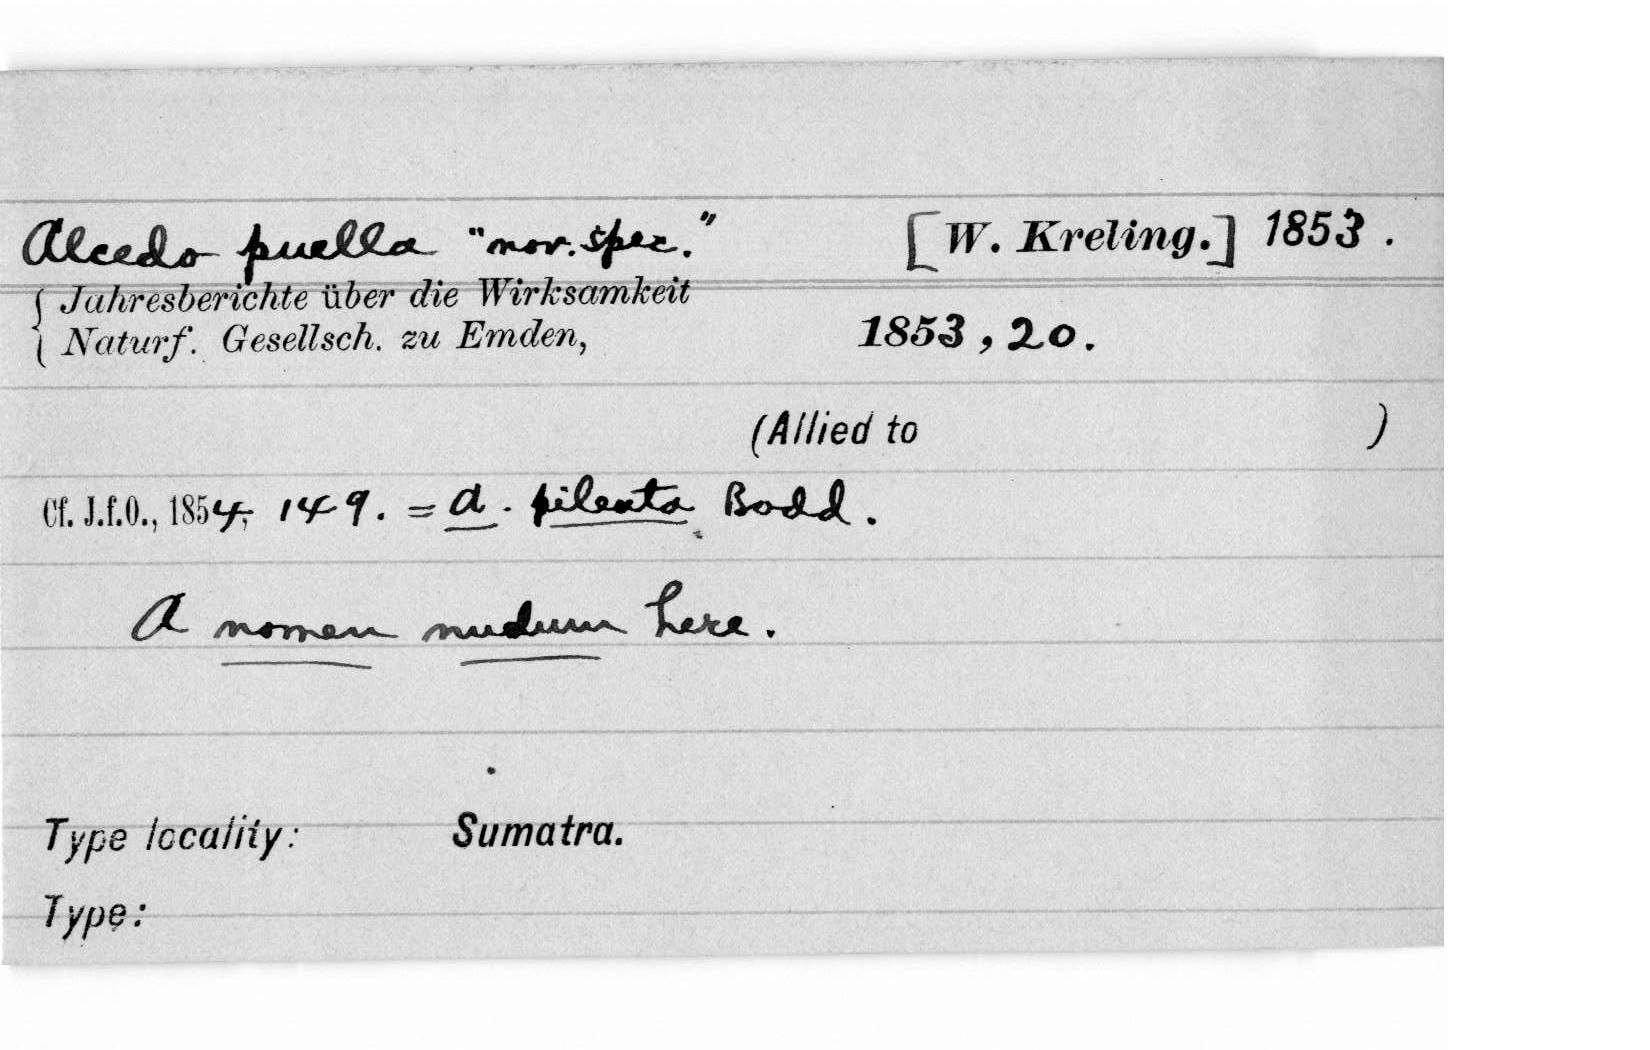 Alcedo puella "nov. spec." [W. Kreling.] 1853.
{ Jahresberichte über die Wirksamkeit
Naturf. Gesellsch. zu Emden, 1853, 20.
(Allied to )
Cf. J.f.O., 1854, 149. = A. pileata Bodd.
A nomen nudum here.
Type locality: Sumatra.
Type: